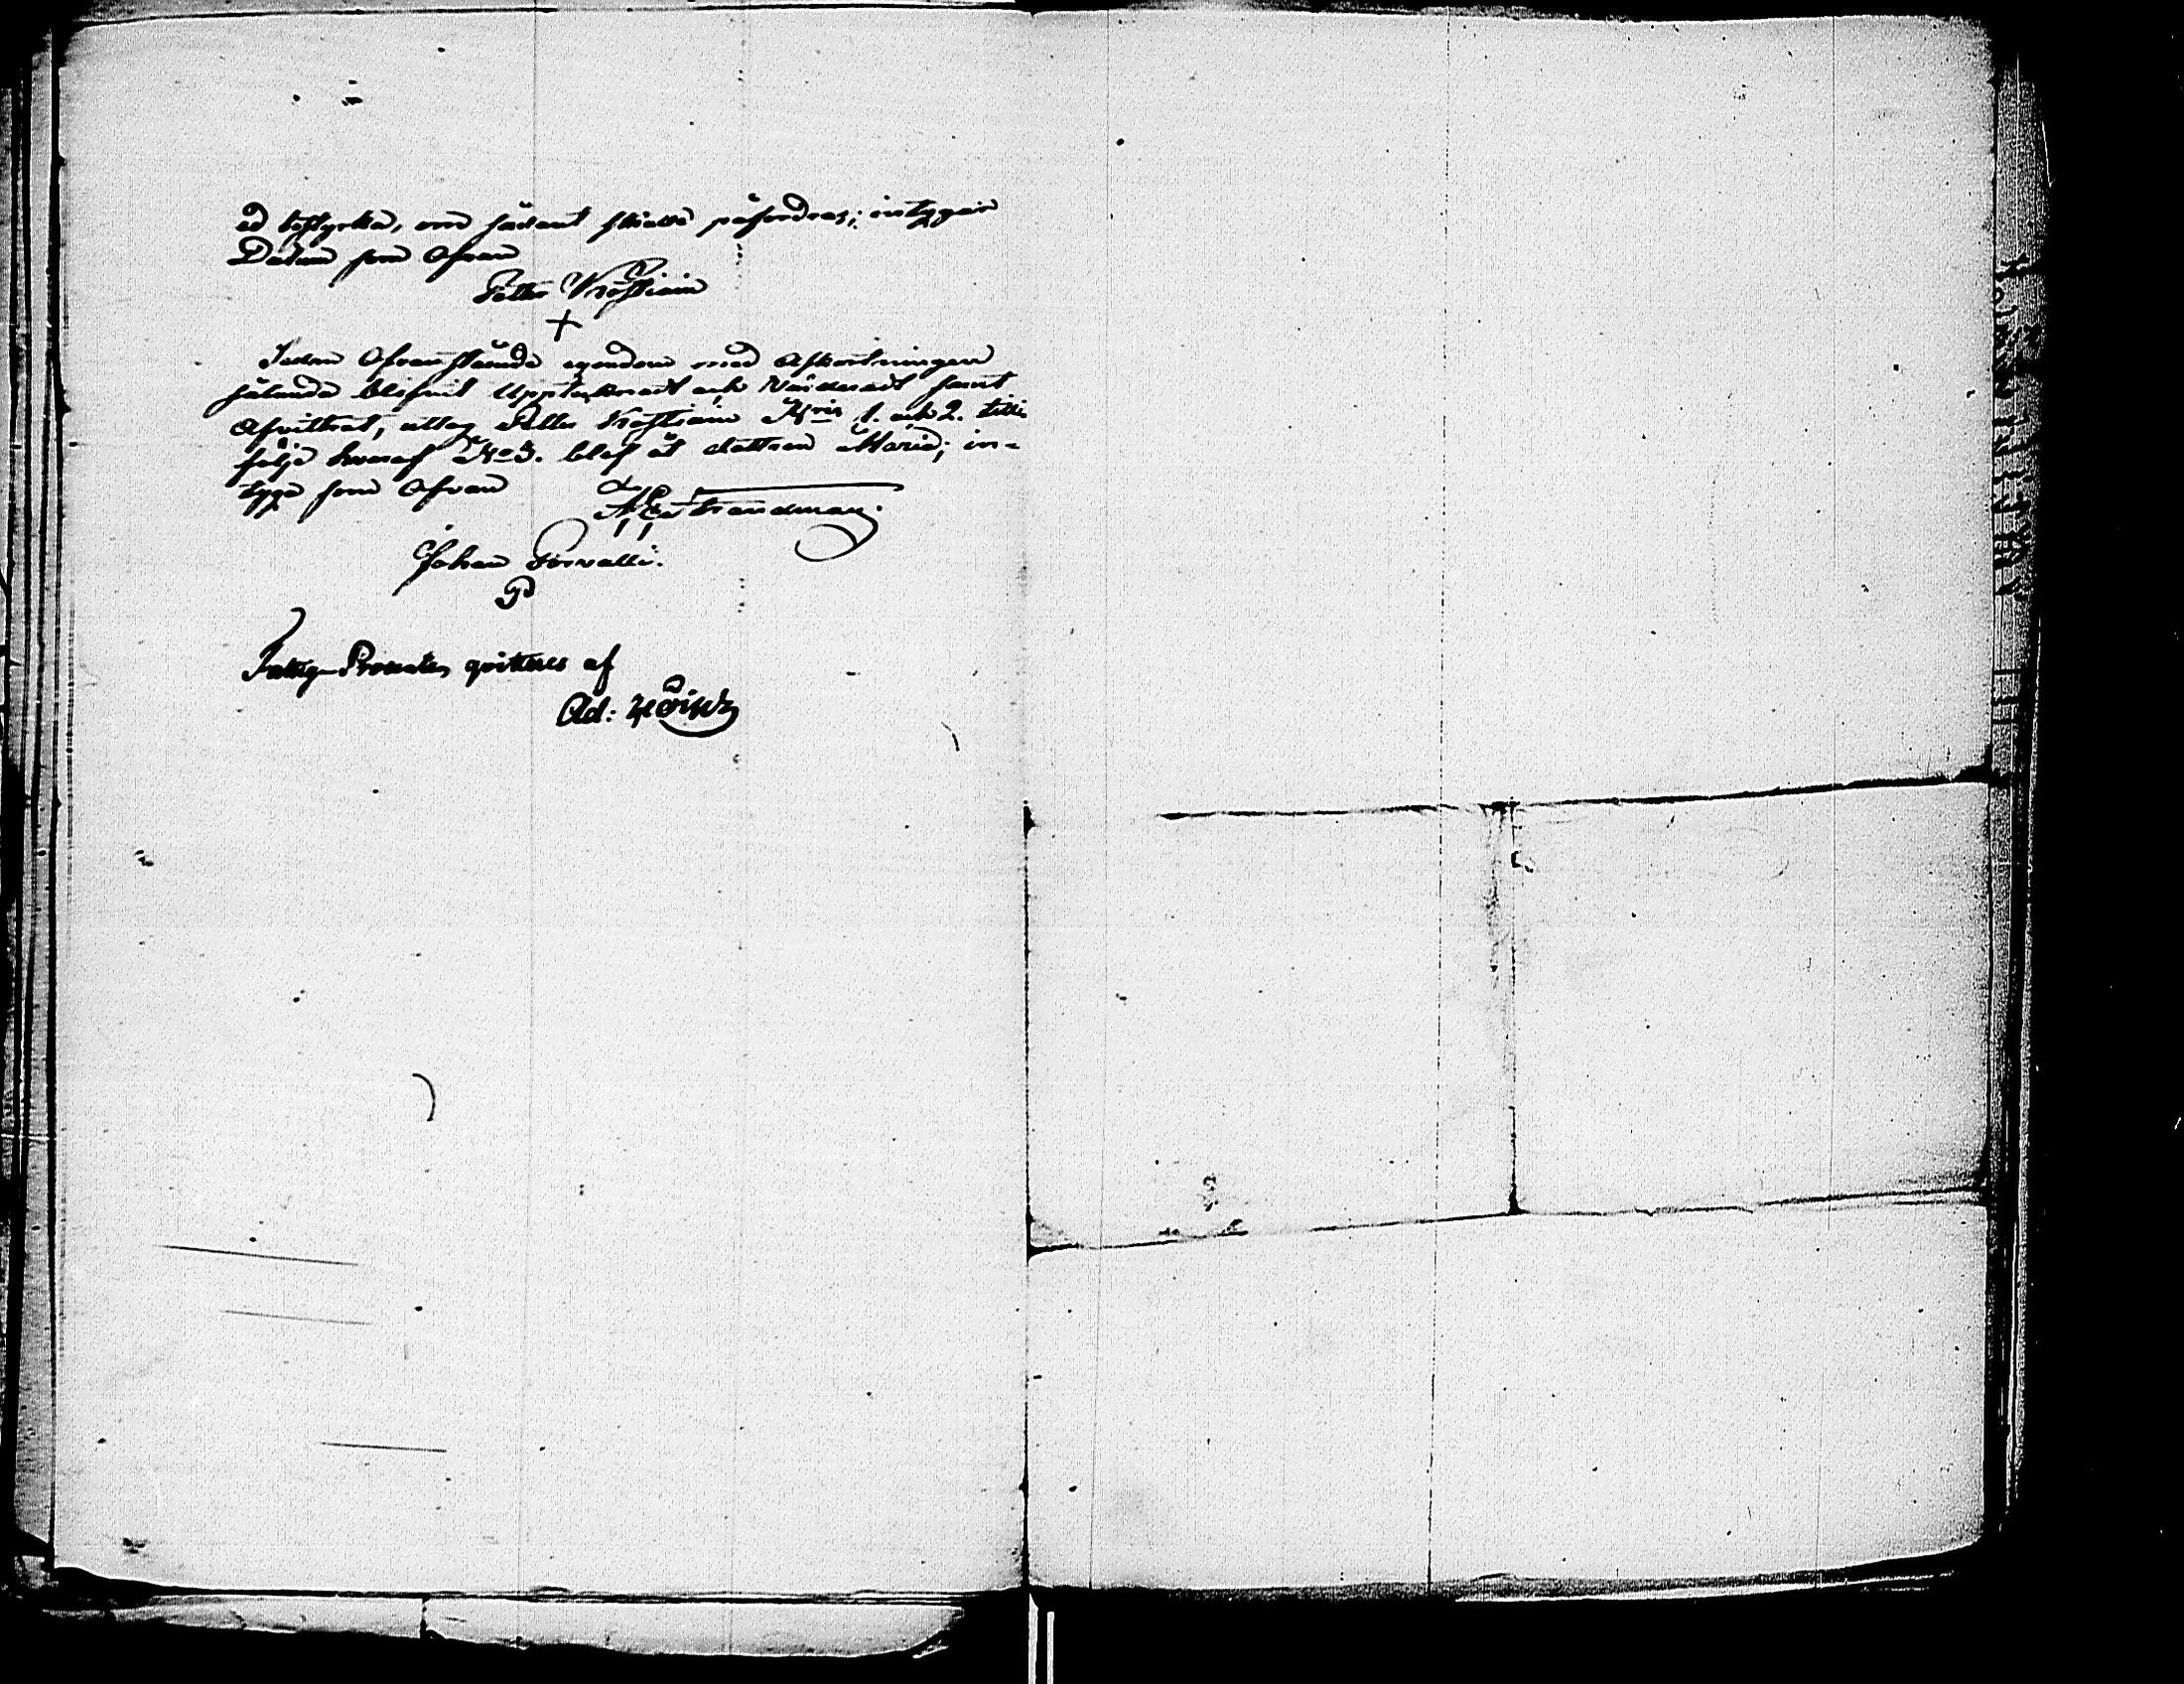 ed bestyrka, om sådant skulle påfordras; intygar
Datum som Ofvan
Petter Kråftiain
+
Sedan Ofvanstående egendom med Afkortningen
sålunda blifvit Upptecknadt och Värderadt samt
Afvittrat, uttog Petter Kråftiain N:ris 1. och 2. till
följe hvaraf N:o 3. blef åt dottren Maria; in-
tyga som Ofvan
Strandman.
Johan Torvalli.
Fattig-Procenten qvitteras af
Ad: